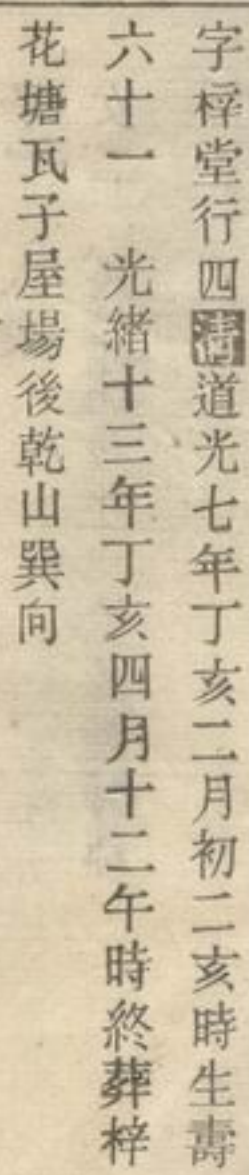 字梓堂行四清道光七年丁亥二月初二亥時生壽
六十一　光緒十三年丁亥四月十二午時終葬梓
花塘瓦子屋場後乾山巽向